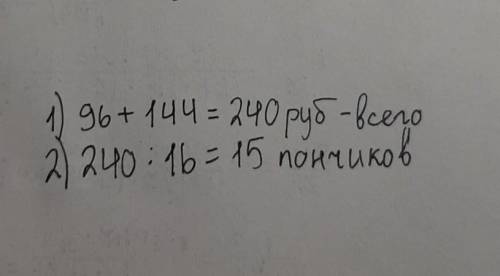 1) 96 + 144 = 240 руб - всего
2) 240 : 16 = 15 пончиков